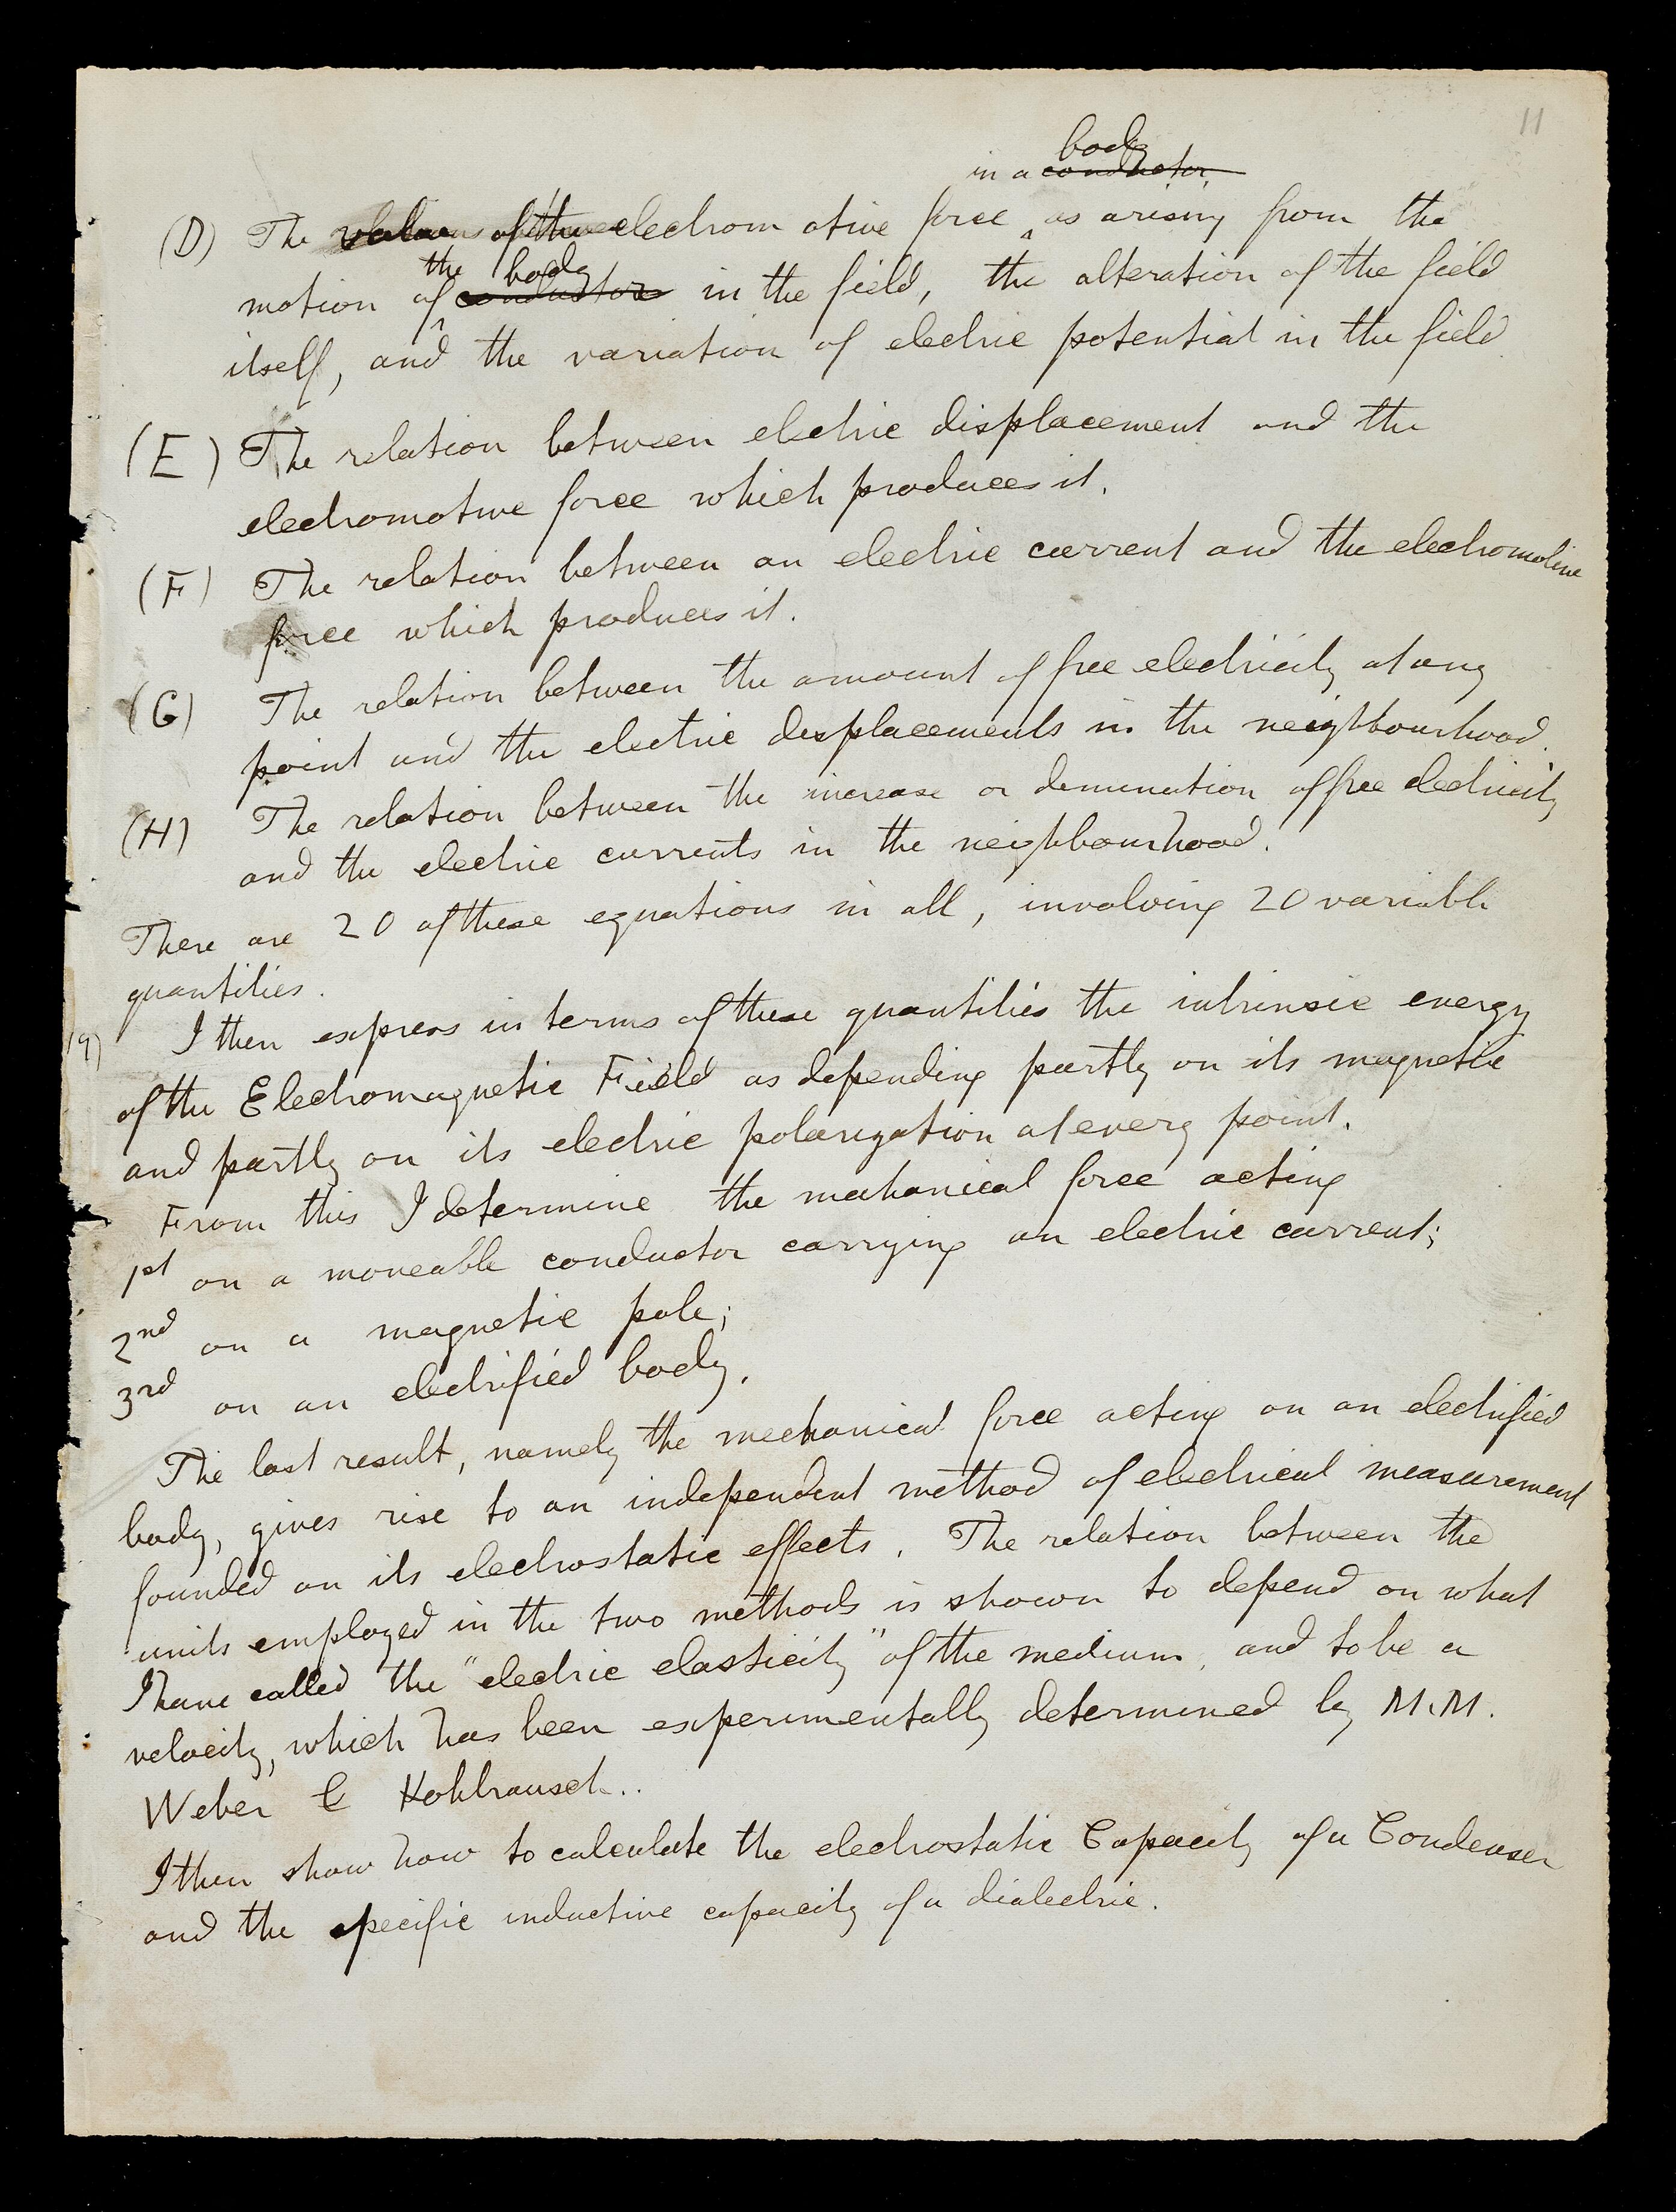 11
body
in a conductor
(D) The values of the electromotive force as arising from the
the body
motion of conductor in the field, the alteration of the field
itself, and the variation of electric potential in the field
(E) The relation between electric displacement and the
electromotive force which produces it.
(F) The relation between an electric current and the electromotive
force which produces it.
(G) The relation between the amount of free electricity at any
point and the electric displacements in the neighbourhood.
(H) The relation between the increase or diminution of free electricity
and the electric currents in the neighbourhood.
There are 20 of these equations in all, involving 20 variable
quantities.
19) I then express in terms of these quantities the intrinsic energy
of the Electromagnetic Field as depending partly on its magnetic
and partly on its electric polarization at every point.
From this I determine the mechanical force acting
1st on a moveable conductor carrying an electric current;
2nd on a magnetic pole;
3rd on an electrified body.
The last result, namely the mechanical force acting on an electrified
body, gives rise to an independent method of electrical measurement
founded on its electrostatic effects. The relation between the
units employed in the two methods is shown to depend on what
I have called the "electric elasticity" of the medium, and to be a
velocity, which has been experimentally determined by M.M.
Weber & Kohlrausch..
I then show how to calculate the electrostatic Capacity of a Condenser
and the specific inductive capacity of a dialectric.